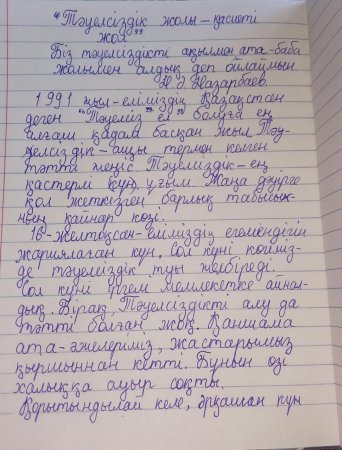 "Тәуелсіздік жолы – қасиеті
жол"
Біз тәуелсіздікті ақылмен ата-баба
жолымен алдық деп ойлаймын.
Н.Ә Назарбаев
1991 жыл-еліміздің Қазақстан
деген "Тәуелсіз ел" болуға ең
алғаш қадам басқан жыл. Тәу-
елсіздік-ащы термен келген
тәтті жеңіс. Тәуелсіздік-ең
қастерлі күн, ұғым. Жаңа дәуірге
қол жеткізген барлық табысы-
ның қайнар көзі.
16-желтоқсан-еліміздің егемендігін
жариялаған күн. Сол күні көгіміз-
де тәуелсіздік туы желбіреді.
Сол күні іргем мемлекетке айнал-
дық. Бірақ, Тәуелсіздікті алу да
тәтті болған жоқ. Қаншама
ата-әжелеріміз, жастарымыз
қыршыннан кетті. Бұнын өзі
халыққа ауыр соқты.
Қорытындылай келе, әрқашан күн